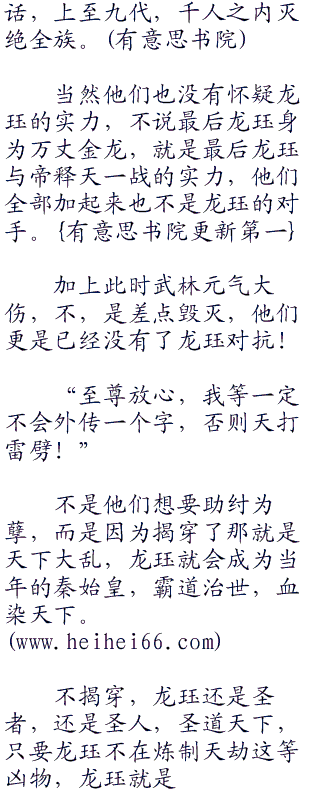 话，上至九代，千人之内灭
绝全族。(有意思书院)
当然他们也没有怀疑龙
珏的实力，不说最后龙珏身
为万丈金龙，就是最后龙珏
与帝释天一战的实力，他们
全部加起来也不是龙珏的对
手。{有意思书院更新第一}
加上此时武林元气大
伤，不，是差点毁灭，他们
更是已经没有了龙珏对抗！
“至尊放心，我等一定
不会外传一个字，否则天打
雷劈！”
不是他们想要助纣为
孽，而是因为揭穿了那就是
天下大乱，龙珏就会成为当
年的秦始皇，霸道治世，血
染天下。
(www.heihei66.com)
不揭穿，龙珏还是圣
者，还是圣人，圣道天下，
只要龙珏不在炼制天劫这等
凶物，龙珏就是